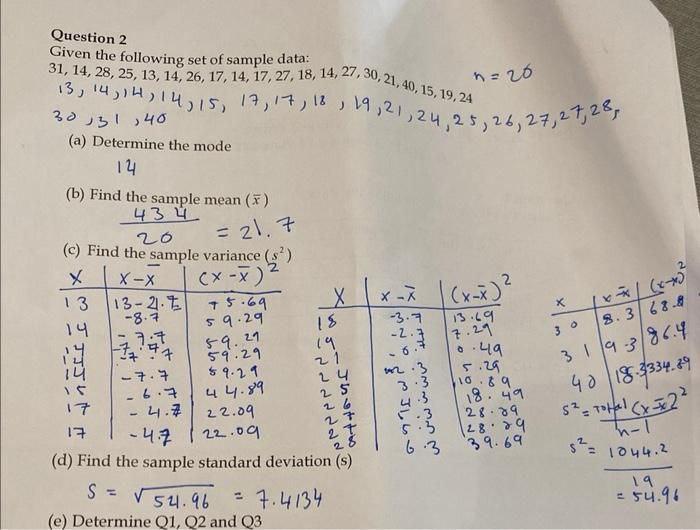 Question 2
Given the following set of sample data:
31, 14, 28, 25, 13, 14, 26, 17, 14, 17, 27, 18, 14, 27, 30, 21, 40, 15, 19, 24
n = 20
13, 14, 14, 14, 15, 17, 17, 18, 19, 21, 24, 25, 26, 27, 27, 28,
30, 31, 40
(a) Determine the mode
14
(b) Find the sample mean (x̄)
434
20
= 21.7
(c) Find the sample variance (s²)
X | X-X̄ | (X-X̄)²
13 | 13-21.7
-8.7 | 75.69
14 | -7.7 | 59.29
14 | -7.7 | 59.29
14 | -7.7 | 59.29
14 | -7.7 | 59.29
15 | -6.7 | 44.89
17 | -4.7 | 22.09
17 | -4.7 | 22.09
X | X-X̄ | (X-X̄)²
18 | -3.7 | 13.69
19 | -2.7 | 7.29
21 | -0.7 | 0.49
24 | 2.3 | 5.29
25 | 3.3 | 10.89
26 | 4.3 | 18.49
27 | 5.3 | 28.09
27 | 5.3 | 28.09
28 | 6.3 | 39.69
X | X-X̄ | (X-X̄)²
30 | 8.3 | 68.8
31 | 9.3 | 86.4
40 | 18.3 | 334.89
S² = Total (X-X̄)²
n-1
S² = 1044.2
19
= 54.96
(d) Find the sample standard deviation (s)
S = √54.96 = 7.4134
(e) Determine Q1, Q2 and Q3